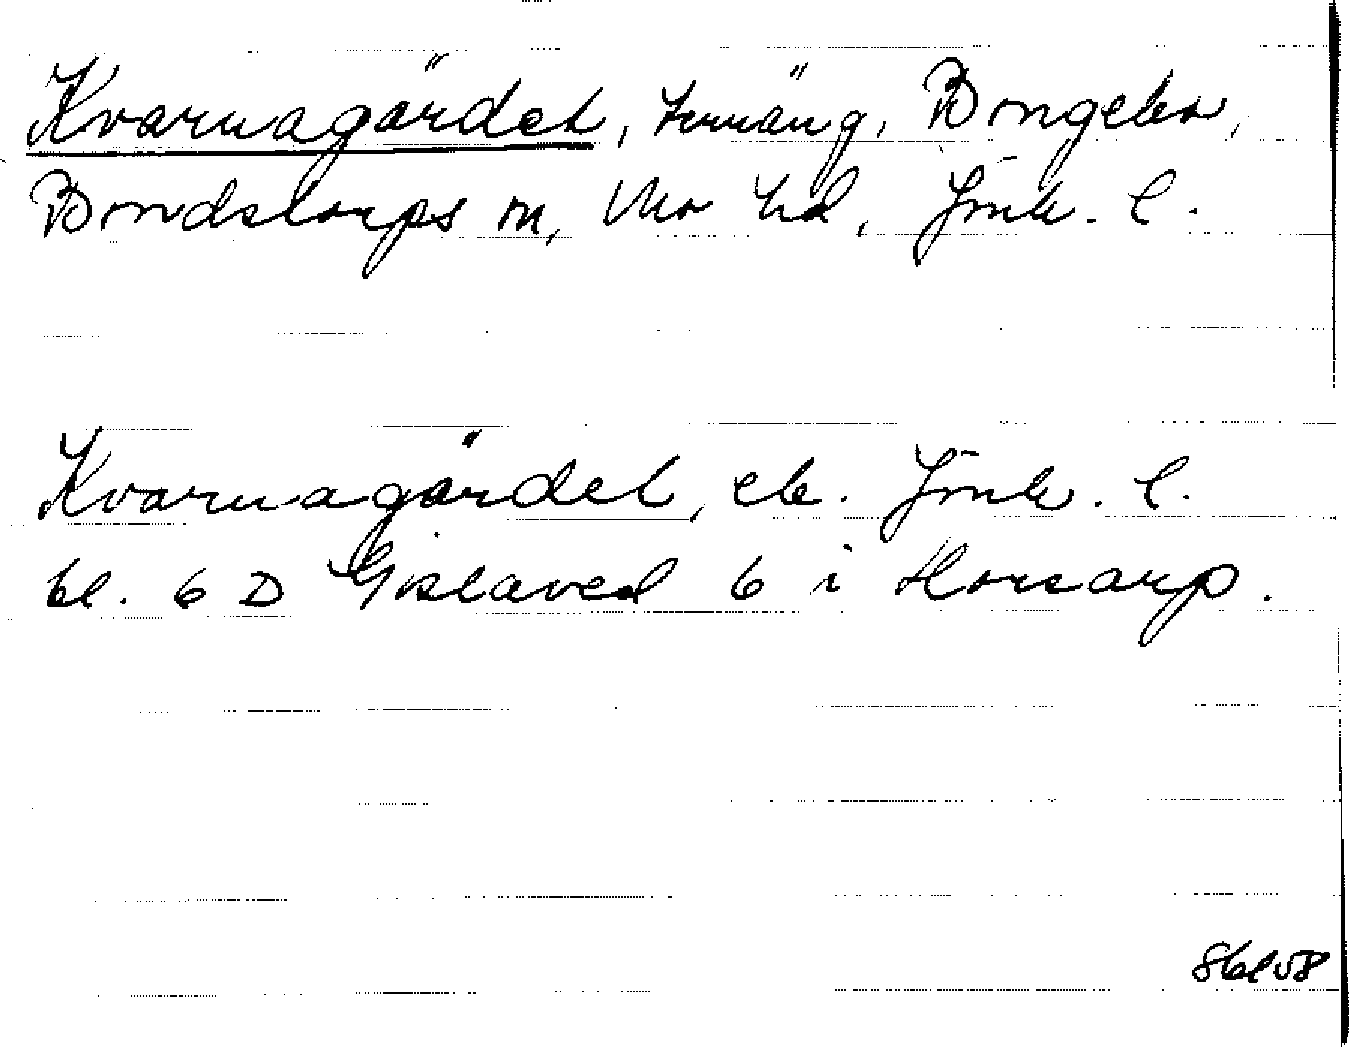 Kvarnagärdet, terräng, Bongebo,
Bondstorps sn, Mo hd, Jönk. l.
Kvarnagärdet, ek. Jönk. l.
bl. 6 D Gislaved 6 i Horsarp.